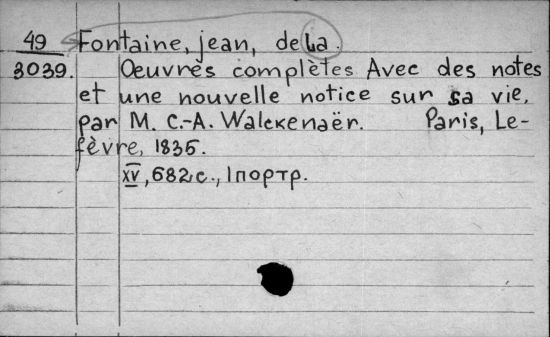 49 Fontaine, jean, de La.
3039. Oeuvres complètes Avec des notes
et une nouvelle notice sur sa vie,
par M. C.-A. Walckenaër. Paris, Le-
fèvre, 1835.
XV, 682 с., 1 портр.